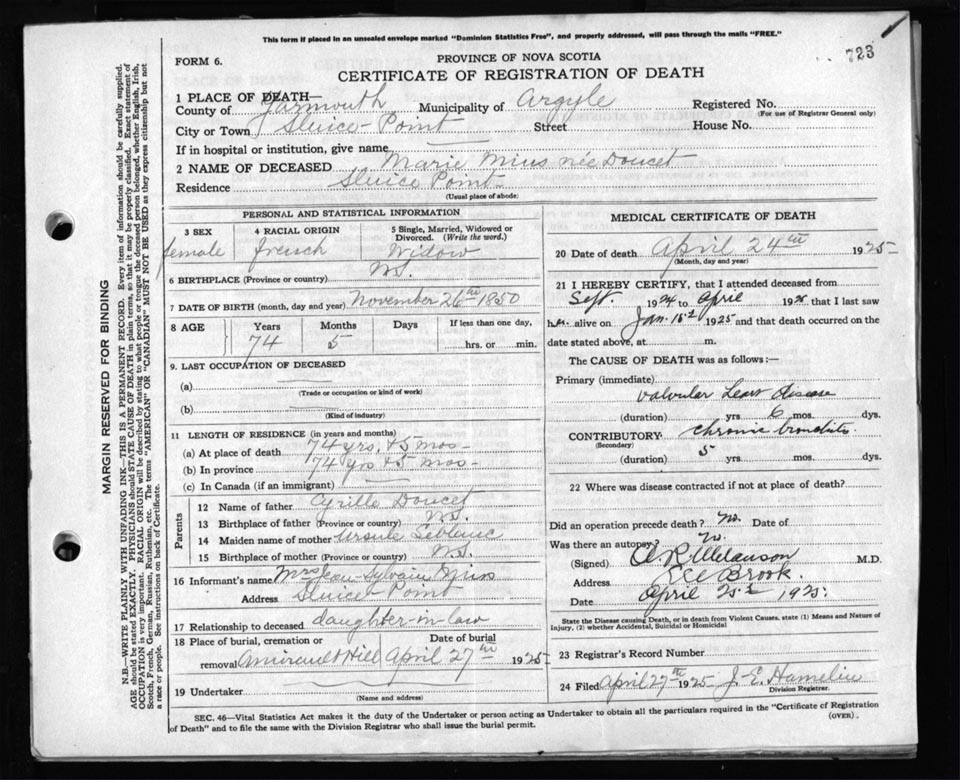 This form if placed in an unsealed envelope marked "Dominion Statistics Free", and properly addressed, will pass through the mails "FREE."
723
FORM 6.
PROVINCE OF NOVA SCOTIA
CERTIFICATE OF REGISTRATION OF DEATH
1 PLACE OF DEATH—
County of Yarmouth Municipality of Argyle Registered No.
(For use of Registrar General only)
City or Town Sluice-Point Street House No.
If in hospital or institution, give name
2 NAME OF DECEASED Marie Mius née Doucet
Residence Sluice Point
(Usual place of abode)
PERSONAL AND STATISTICAL INFORMATION
3 SEX 4 RACIAL ORIGIN 5 Single, Married, Widowed or Divorced. (Write the word.)
female french Widow
6 BIRTHPLACE (Province or country) N.S.
7 DATE OF BIRTH (month, day and year) November 26th 1850
8 AGE Years Months Days If less than one day,
74 5 hrs. or min.
9. LAST OCCUPATION OF DECEASED
(a)
(Trade or occupation or kind of work)
(b)
(Kind of industry)
11 LENGTH OF RESIDENCE (in years and months)
(a) At place of death 74 yrs, +5 mos-
(b) In province 74 yrs +5 mos-
(c) In Canada (if an immigrant)
Parents
12 Name of father Cyrille Doucet
13 Birthplace of father (Province or country) N.S.
14 Maiden name of mother Ursule Leblanc
15 Birthplace of mother (Province or country) N.S.
16 Informant's name Mrs Jean-Sylvain Mius
Address Sluice Point
17 Relationship to deceased daughter-in-law
18 Place of burial, cremation or Date of burial
removal Amirault Hill April 27th 1925
19 Undertaker
(Name and address)
MEDICAL CERTIFICATE OF DEATH
20 Date of death April 24th 1925
(Month, day and year)
21 I HEREBY CERTIFY, that I attended deceased from
Sept. 1924 to April 1925 and that I last saw
h alive on Jan. 1925 and that death occurred on the
date stated above, at m.
The CAUSE OF DEATH was as follows:—
Primary (immediate)
valvular heart disease
(duration) yrs 6 mos. dys.
CONTRIBUTORY chronic bronchitis
(Secondary)
(duration) 5 yrs. mos. dys.
22 Where was disease contracted if not at place of death?
Did an operation precede death? No. Date of
Was there an autopsy? No.
(Signed) A. R. Melanson M.D.
Address Eel Brook.
Date April 25 1925.
State the Disease causing Death, or in death from Violent Causes, state (1) Means and Nature of
Injury, (2) whether Accidental, Suicidal or Homicidal
23 Registrar's Record Number
24 Filed April 27th 1925 J-E. Hamelin
Division Registrar.
SEC. 46—Vital Statistics Act makes it the duty of the Undertaker or person acting as Undertaker to obtain all the particulars required in the "Certificate of Registration
of Death" and to file the same with the Division Registrar who shall issue the burial permit.
(OVER).
MARGIN RESERVED FOR BINDING
N.B.—WRITE PLAINLY WITH UNFADING INK—THIS IS A PERMANENT RECORD. Every item of information should be carefully supplied.
AGE should be stated EXACTLY. PHYSICIANS should STATE CAUSE OF DEATH in plain terms, so that it may be properly classified. Exact statement of
OCCUPATION is very important. RACIAL ORIGIN will be described by stating to what people or tongue the deceased person belonged, whether English, Irish,
Scotch, French, German, Russian, Ruthenian, etc. The terms "AMERICAN" OR "CANADIAN" MUST NOT BE USED as they express citizenship but not
a race or people. See instructions on back of Certificate.